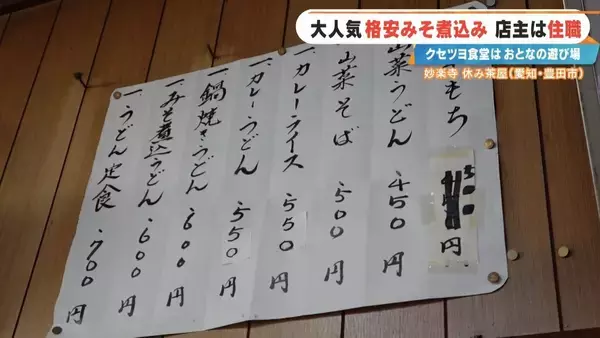 大人気 格安みそ煮込み 店主は住職
クセツヨ食堂は おとなの遊び場
妙楽寺 休み茶屋(愛知・豊田市)
もち 500円
山菜うどん 450円
山菜そば 500円
一、カレーライス 550円
一、カレーうどん 550円
一、鍋焼きうどん 600円
一、みそ煮込うどん 600円
一、うどん定食 700円